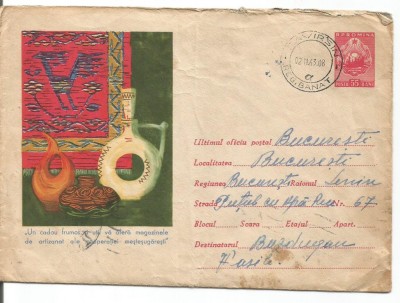 R.P.ROMÎNA
POSTA 55 BANI
SĂVÎRȘIN
REG. BANAT
„Un cadou frumos vă oferă magazinele
de artizanat ale cooperației meșteșugărești"
Ultimul oficiu poștal București
Localitatea București
Regiunea București Raionul Lenin
Strada cu apă Rece Nr. 67
Blocul Scara Etajul Apart.
Destinatarul Buzdugan
Vasile